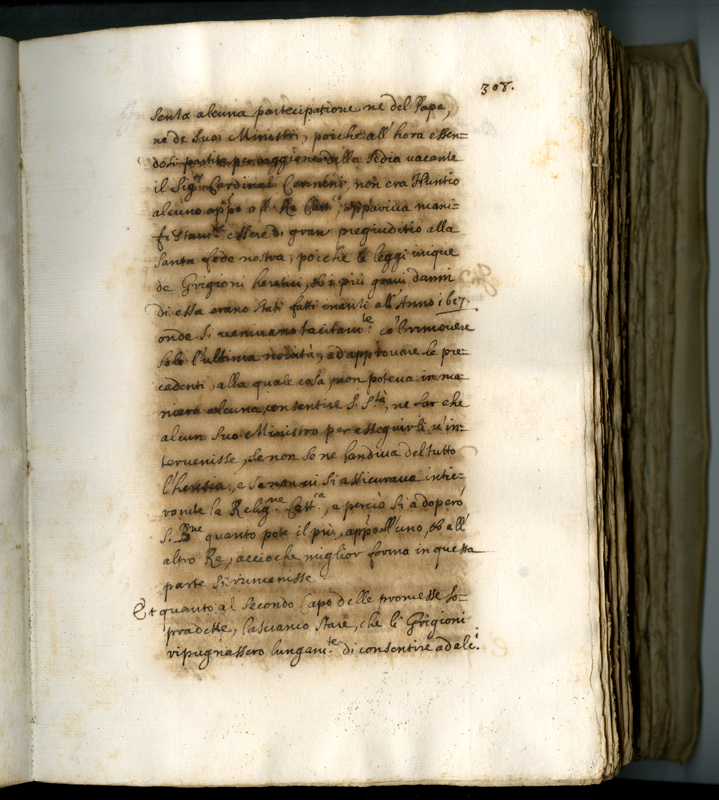 308.
senza alcuna partecipatione ne del Papa,
ne de Suoi Ministri, poiche all'hora essen-
dosi partito per caggione della Sedia vacante
il Sigr Cardinal Corsini, non era Nuntio
alcuno appo il Re Cattco, appariua mani-
festamte essere di gran pregiuditio alla
santa fede nostra, poiche le leggi inique
de Grigioni heretici, et i più graui danni
di essa erano stati fatti inanti all'Anno 1617.
onde si ueniuano tacitamte co'l rimouere
solo l'ultima nouità, ad approuare le pre-
cedenti, alla quale cosa, non poteua in ma-
niera alcuna consentire S. Stà, ne far che
alcun suo Ministro per esseguirli u'in-
teruenisse, se non se ne bandiua del tutto
l'heresia, e se non ui si assicuraua intie-
ramte la Religne Cattca, e perciò si adoperò
S. Bne quanto pote il più, appo all'uno, et all'
altro Re, accioche miglior forma in questa
parte si riuenisse.
Et quanto al secondo Capo delle promesse so-
pradette, lasciamo stare, che li Grigioni
ripugnassero lungamte di consentire ad alc.i